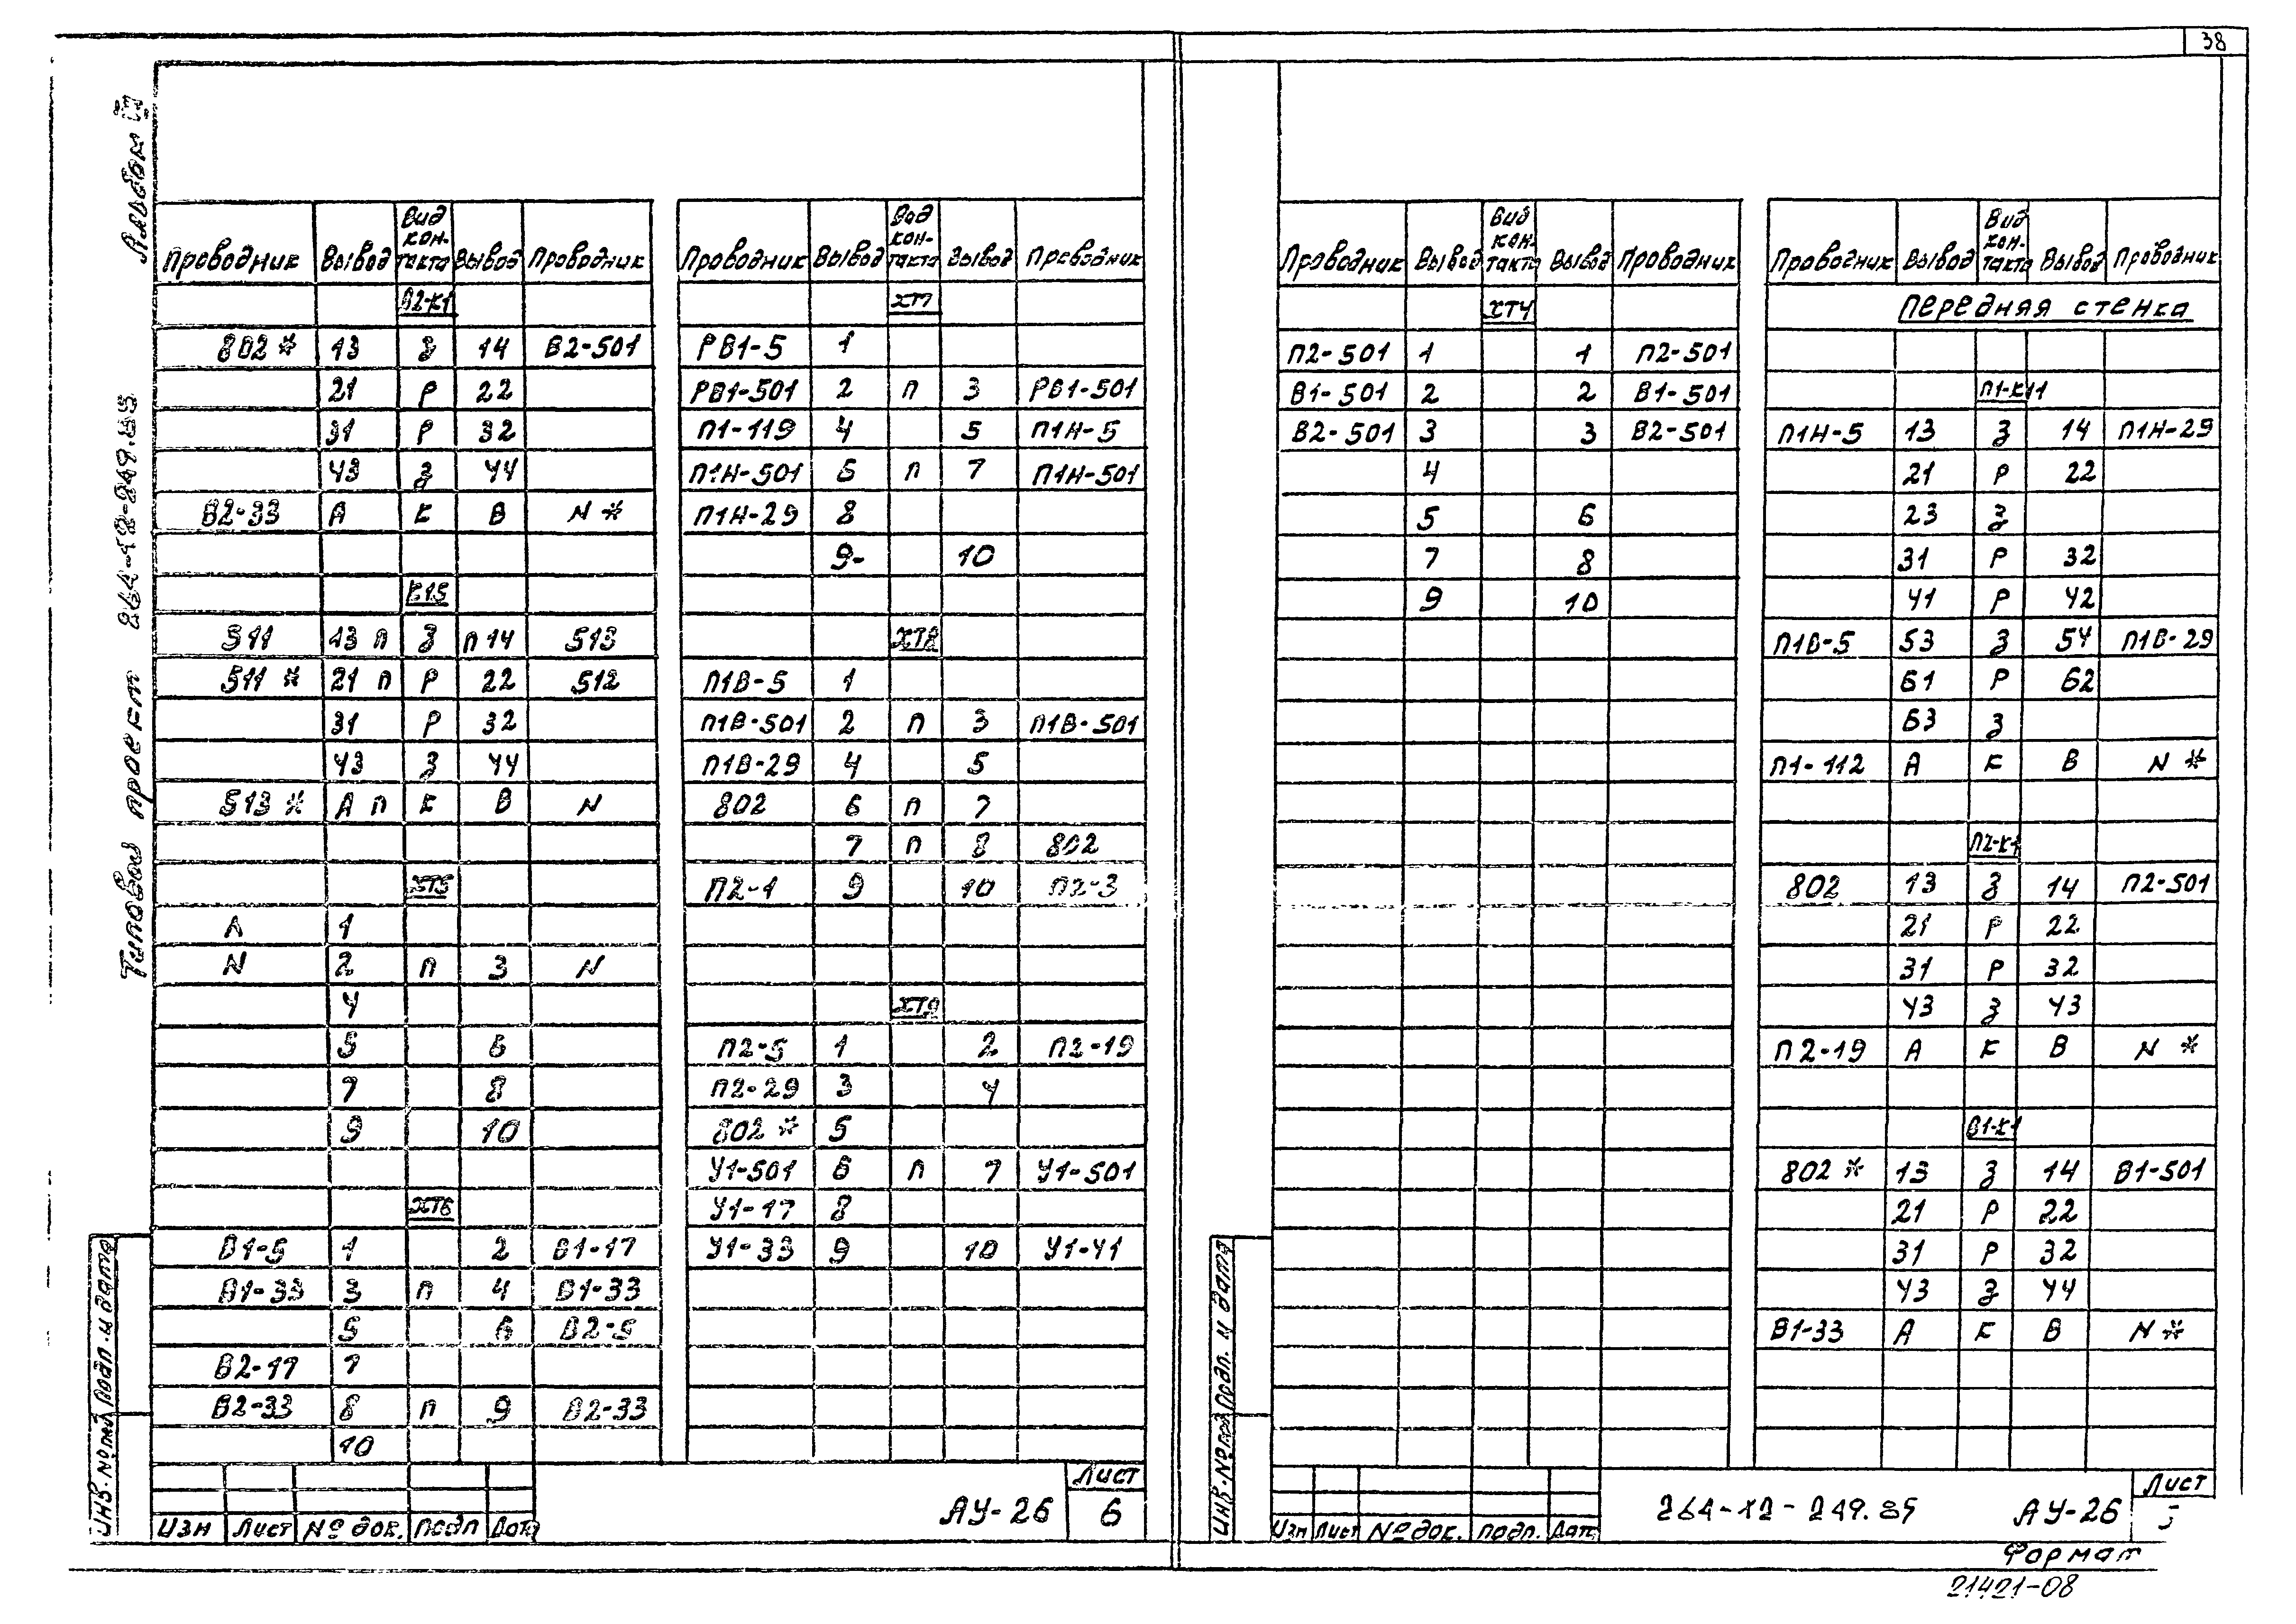 38
Альбом
Типовой проект 264-12-249.85
Проводник Вывод Вид кон-такта Вывод Проводник
В2-К1
802 * 13 З 14 В2-501
21 Р 22
31 Р 32
43 З 44
В2-33 А К В N *
К15
511 13 П З П 14 513
511 * 21 П Р 22 512
31 Р 32
43 З 44
513 * А П К В N
ХТ5
А 1
N 2 П 3 N
4
5 6
7 8
9 10
ХТ6
В1-5 1 2 В1-17
В1-33 3 П 4 В1-33
5 6 В2-5
В2-17 7
В2-33 8 П 9 В2-33
10
Проводник Вывод Вид кон-такта Вывод Проводник
ХТ7
РВ1-5 1
РВ1-501 2 П 3 РВ1-501
П1-119 4 5 П1Н-5
П1Н-501 6 П 7 П1Н-501
П1Н-29 8
9- 10
ХТ8
П1В-5 1
П1В-501 2 П 3 П1В-501
П1В-29 4 5
802 6 П 7
7 П 8 802
П2-1 9 10 П2-3
ХТ9
П2-5 1 2 П2-19
П2-29 3 4
802 * 5
У1-501 6 П 7 У1-501
У1-17 8
У1-33 9 10 У1-41
Инв.№подл Подп.и дата
Изм Лист № док. Подп Дата
АУ-26
Лист
6
Проводник Вывод Вид кон-такта Вывод Проводник
ХТ4
П2-501 1 1 П2-501
В1-501 2 2 В1-501
В2-501 3 3 В2-501
4
5 6
7 8
9 10
Проводник Вывод Вид кон-такта Вывод Проводник
Передняя стенка
П1-К11
П1Н-5 13 З 14 П1Н-29
21 Р 22
23 З
31 Р 32
41 Р 42
П1В-5 53 З 54 П1В-29
61 Р 62
63 З
П1-112 А К В N *
П2-К1
802 13 З 14 П2-501
21 Р 22
31 Р 32
43 З 43
П2-19 А К В N *
В1-К1
802 * 13 З 14 В1-501
21 Р 22
31 Р 32
43 З 44
В1-33 А К В N *
Инв.№подл Подп. и дата
Изм Лист № док. Подп. Дата
264-12-249.85 АУ-26
Лист
Формат
21421-08